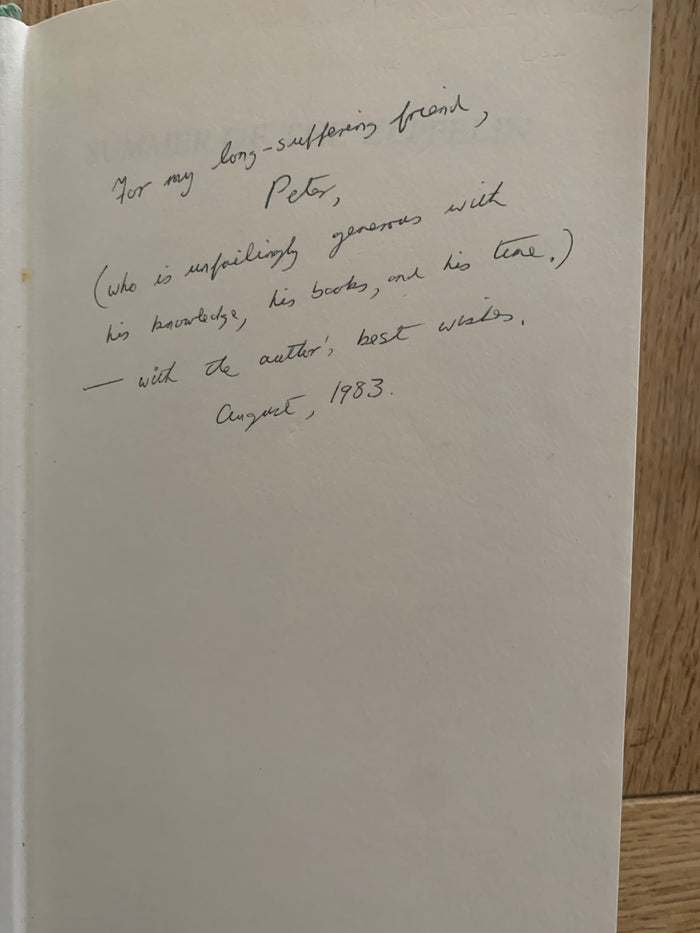 SUMMER OF THE ZEPPELIN
For my long-suffering friend,
Peter,
(who is unfailingly generous with
his knowledge, his books, and his time.)
— with the author's best wishes.
August, 1983.